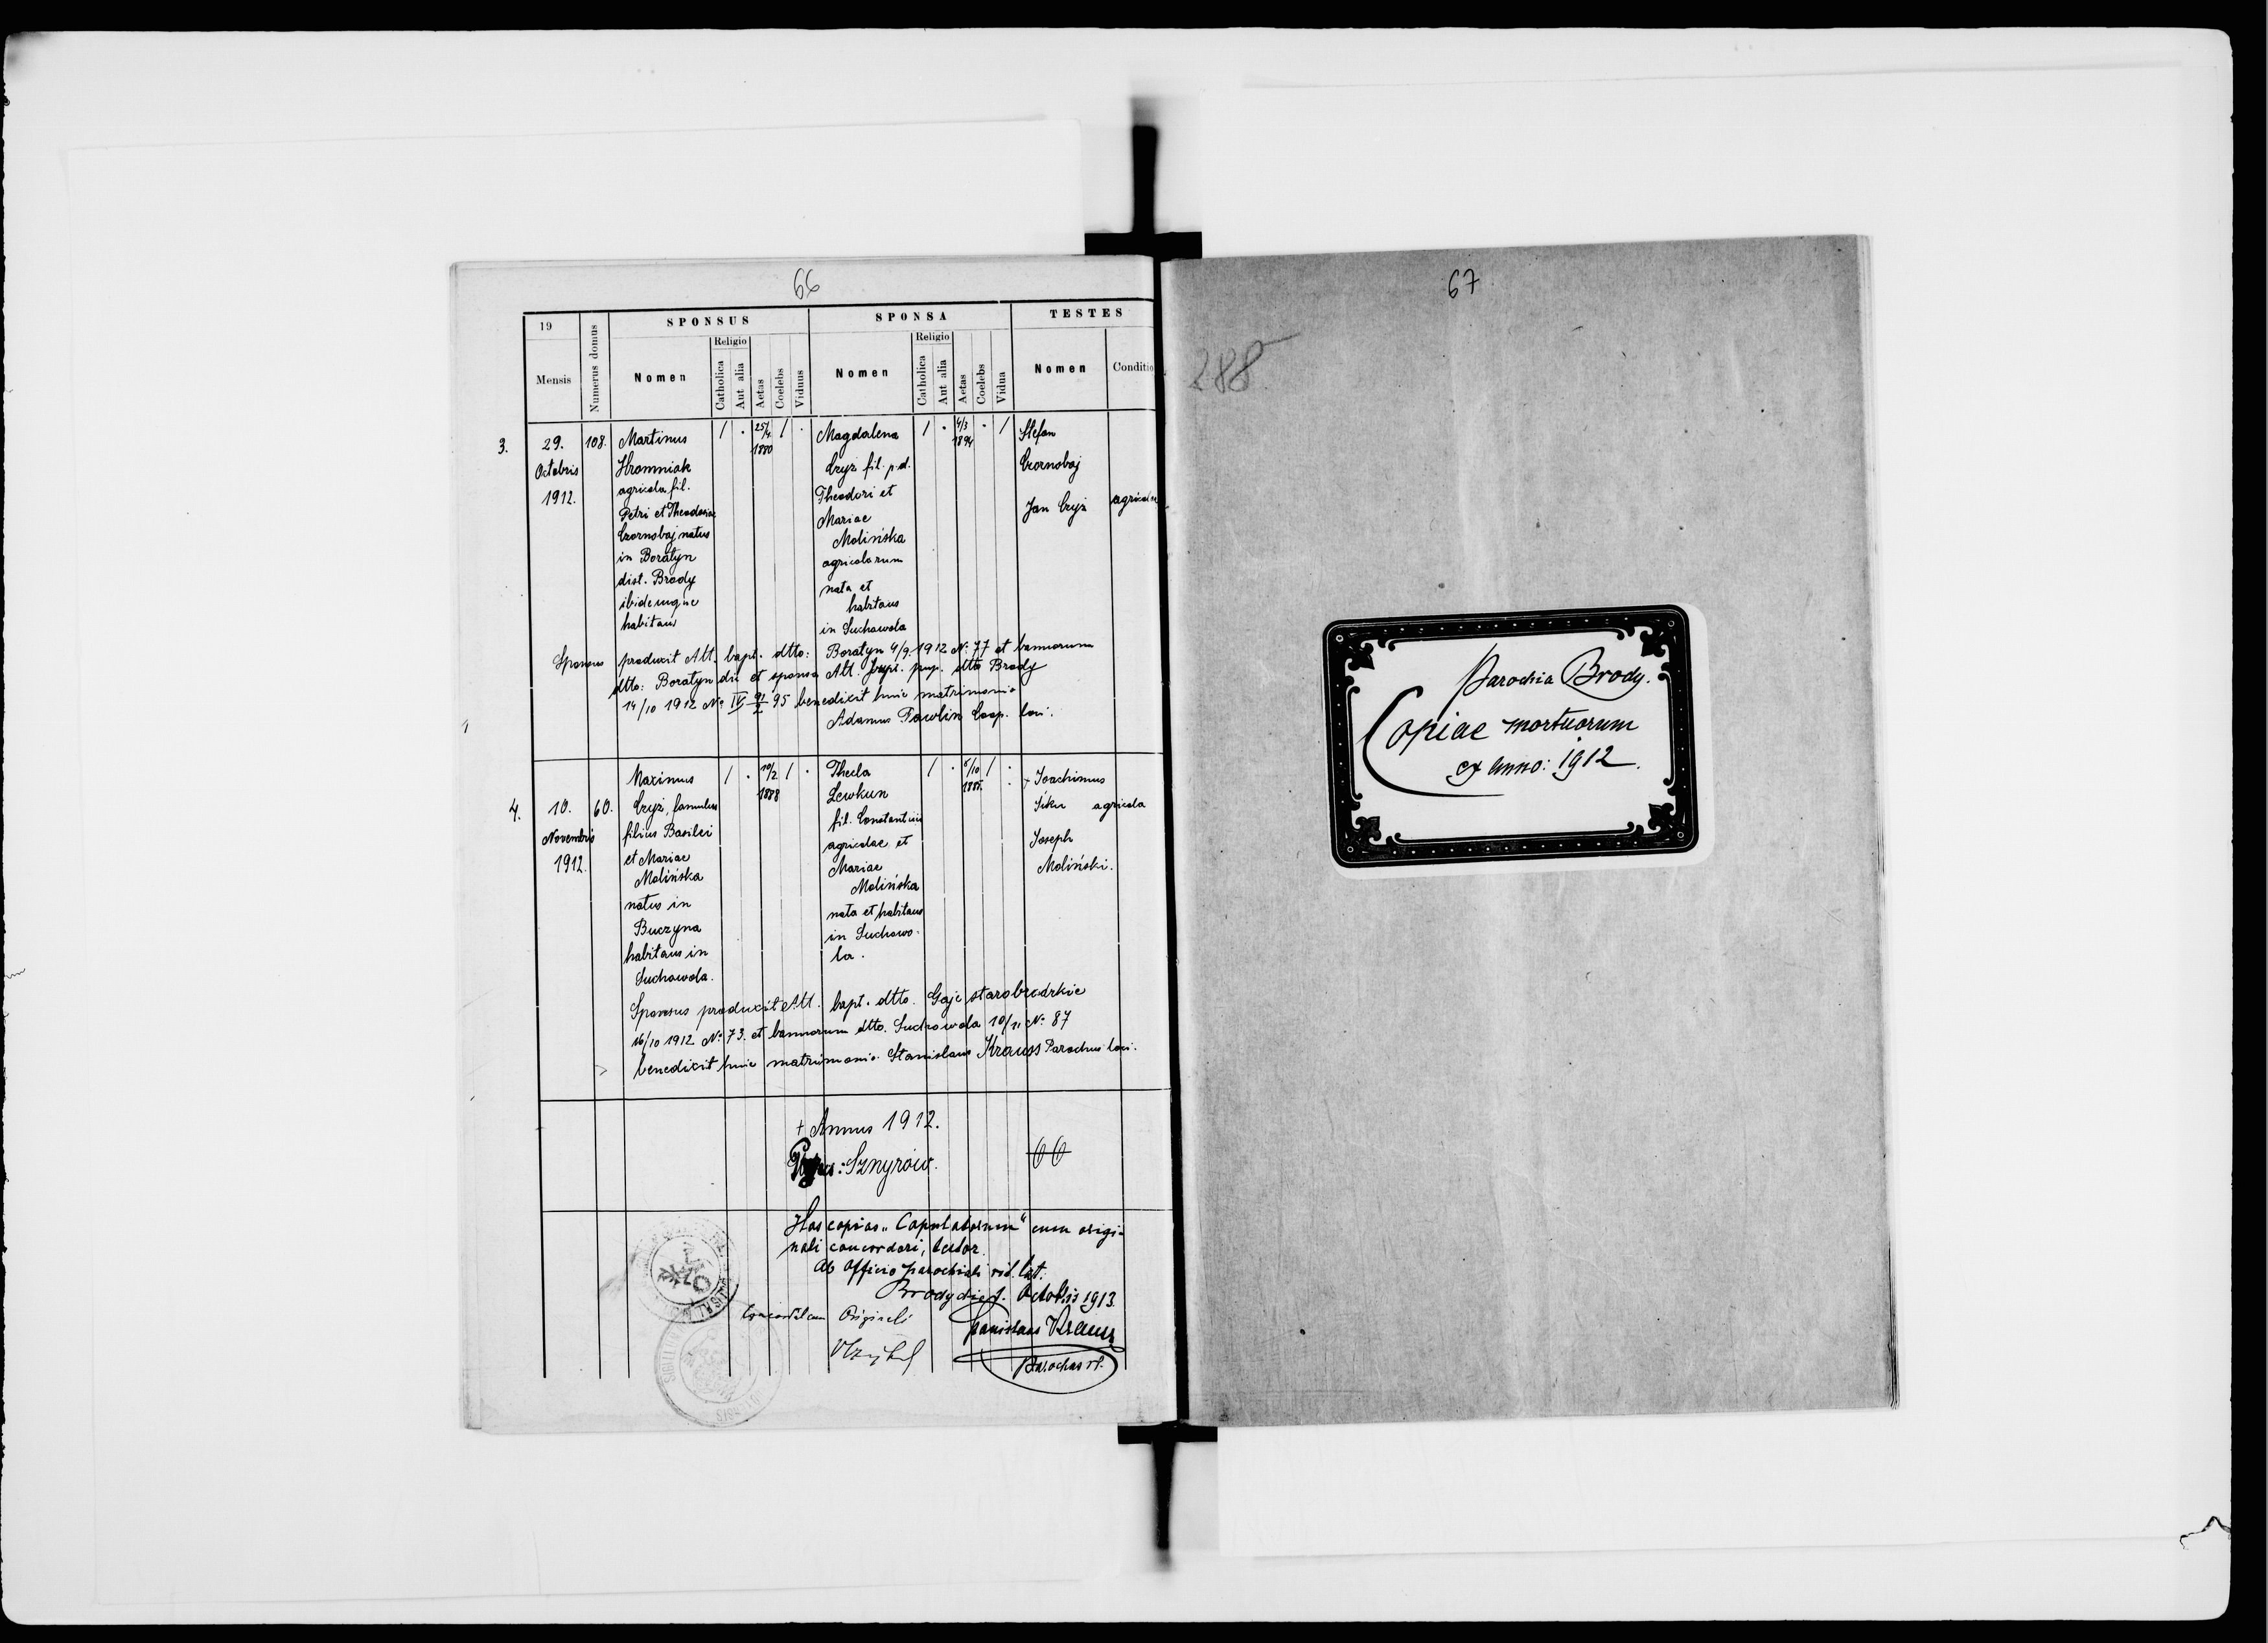 66
19
Mensis
Numerus domus
SPONSUS
Nomen
Religio
Catholica
Aut alia
Aetas
Coelebs
Viduus
SPONSA
Nomen
Religio
Catholica
Aut alia
Aetas
Coelebs
Vidua
TESTES
Nomen
Conditio
3.
29.
Octobris
1912.
108.
Martinus
Hromniak
agricola, fil.
Petri et Theodosiae
Czornobaj natus
in Boratyn
dist. Brody
ibidemque
habitans
/ . 25/4 / .
1880
Magdalena
Czyż fil. p.d.
Theodori et
Mariae
Molińska
agricolarum
nata et
habitans
in Suchowola
/ . 4/3 . /
1894
Stefan
Czornobaj
Jan Czyż
agricolae
Sponsus produxit Att. bapt. dtto: Boratyn 4/9 1912 N: 77 et bannorum
dtto: Boratyn dii et sponsa Att. pup. dtto Brody
14/10 1912 No IV 95 benedixit huic matrimonio
Adamus Pawlin Coop. loci.
4.
10.
Novembris
1912.
60.
Maximus
Czyż, famulus
filius Basilei
et Mariae
Molińska
natus in
Buczyna
habitans in
Suchowola.
/ . 10/2 / .
1888
Thecla
Lewkun
fil. Constantini
agricolae et
Mariae
Molińska
nata et habitans
in Suchowo-
la.
/ . /10 / .
Joachimus
Siku agricola
Joseph
Moliński.
Sponsus produxit Att. bapt. dtto. Gaje starobrodzkie
16/10 1912 No 73. et bannorum dtto. Suchowola 10/11 No 87
benedixit huic matrimonio. Stanislaus Krauss Parochus loci.
+ Annus 1912.
: Sznyrów.
66
Has copias „Copulatorum" cum origi-
nali concordari, testor.
Ab Officio parochiali rit. lat.
Brody die 1. Octobris 1913.
Concordat cum Originali
Stanislaus Krauss
Parochus rl.
67
288
Parochia Brody.
Copiae mortuorum
ex anno: 1912.